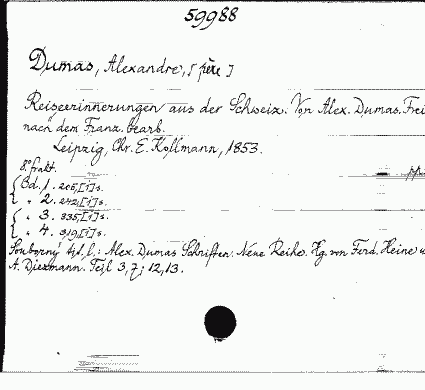 59988
Dumas, Alexandre, [père]
Reiseerinnerungen aus der Schweiz. Von Alex. Dumas. Frei
nach dem Franz. bearb.
Leipzig, Chr. E. Kollmann, 1853.
8° frakt.
Bd. 1. 205,[1] s.
" 2. 242,[1] s.
" 3. 335,[1] s.
" 4. 319,[1] s.
Souborný tit. l.: Alex. Dumas Schriften. Neue Reihe. Hg. von Ferd. Heine u
A. Diezmann. Teil 3, 7; 12, 13.